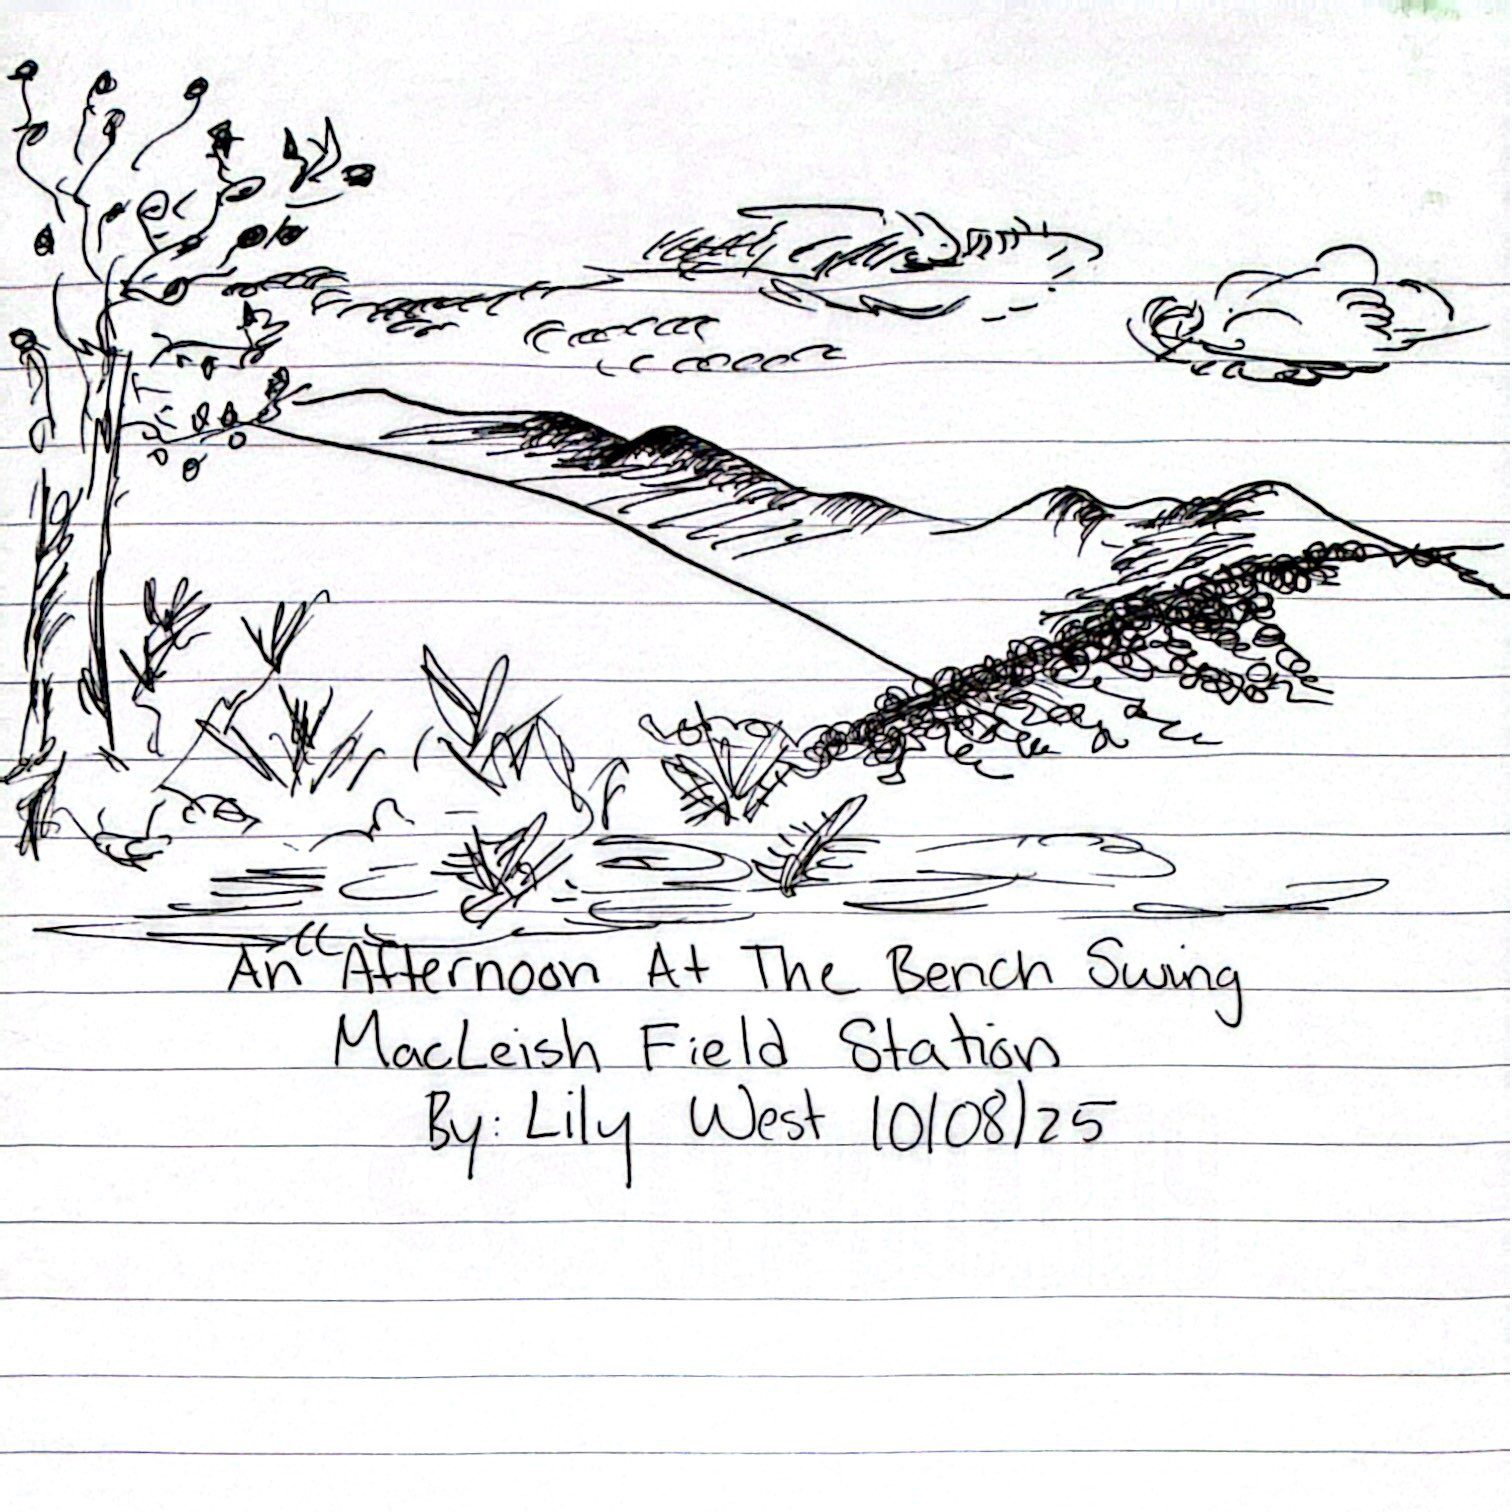 An "Afternoon At The Bench Swing
MacLeish Field Station
By: Lily West 10/08/25